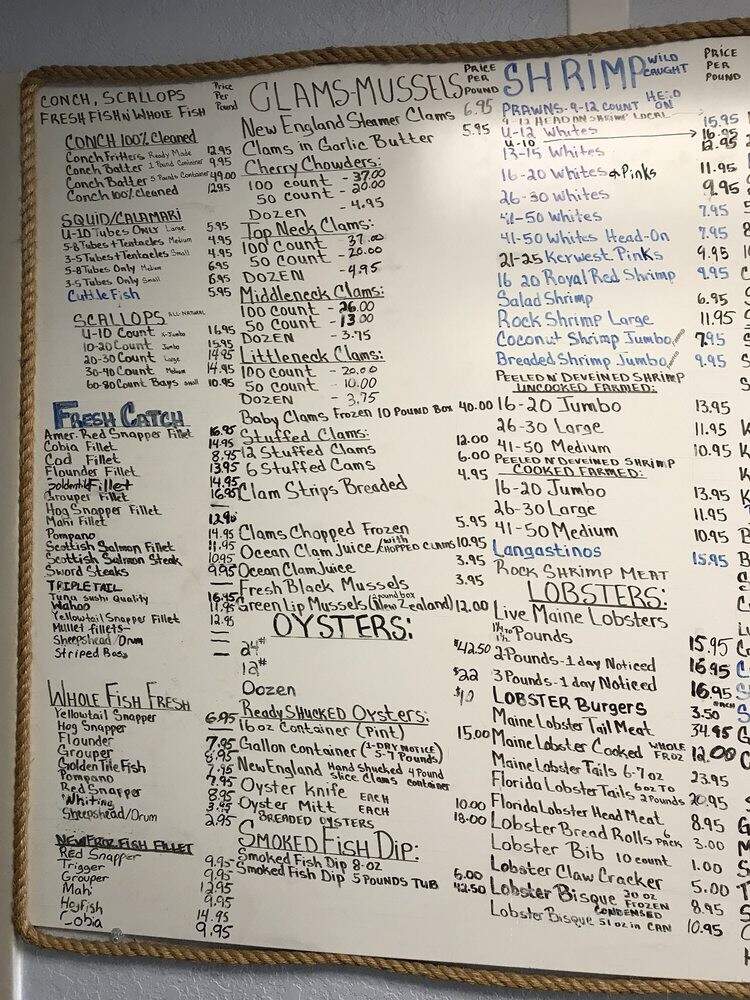 CONCH, SCALLOPS
FRESH FISH N WHOLE FISH
Price Per Pound
CONCH 100% Cleaned
Conch Fritters Ready Made 12.95
Conch Batter 1 Pound Container 9.95
Conch Batter 5 Pounds Container 49.00
Conch 100% cleaned 12.95
SQUID/CALAMARI
U-10 Tubes Only Large 5.95
5-8 Tubes + Tentacles Medium 4.95
3-5 Tubes + Tentacles Small 4.95
5-8 Tubes Only Medium 6.95
3-5 Tubes Only Small 6.95
Cuttle Fish 5.95
SCALLOPS ALL-NATURAL
U-10 Count X-Jumbo 16.95
10-20 Count Jumbo 15.95
20-30 Count Large 14.95
30-40 Count Medium 14.95
60-80 Count Bays small 10.95
FRESH CATCH
Amer. Red Snapper Fillet 16.95
Cobia Fillet 14.95
Cod Fillet 8.95
Flounder Fillet 13.95
Goldentile Fillet 14.95
Grouper Fillet 16.95
Hog Snapper Fillet
Mahi Fillet 12.90
Pompano 14.95
Scottish Salmon Fillet 11.95
Scottish Salmon Steak 10.95
Sword Steaks 9.95
TRIPLETAIL
Tuna sushi Quality 16.95
Wahoo 11.95
Yellowtail Snapper Fillet 12.95
Mullet fillets
Sheepshead/Drum
Striped Bass
WHOLE FISH FRESH
Yellowtail Snapper 6.95
Hog Snapper
Flounder 7.95
Grouper 8.95
Golden Tile Fish 7.95
Pompano 7.95
Red Snapper 8.95
Whiting 3.95
Sheepshead/Drum 2.95
NEW FROZ FISH FILLET
Red Snapper 9.95
Trigger 9.95
Grouper 12.95
Mahi 9.95
Hogfish 14.95
Cobia 9.95
CLAMS-MUSSELS
PRICE PER POUND
New England Steamer Clams 6.95
Clams in Garlic Butter 5.95
Cherry Chowders:
100 count - 37.00
50 count - 20.00
Dozen - 4.95
Top Neck Clams:
100 Count 37.00
50 Count - 20.00
DOZEN - 4.95
Middleneck Clams:
100 Count - 26.00
50 Count - 13.00
DOZEN - 3.75
Littleneck Clams:
100 Count - 20.00
50 Count - 10.00
DOZEN - 3.75
Baby Clams Frozen 10 Pound Box 40.00
Stuffed Clams:
12 Stuffed Clams 12.00
6 Stuffed Cams 6.00
Clam Strips Breaded 4.95
Clams Chopped Frozen 5.95
Ocean Clam Juice (with CHOPPED CLAMS 10.95
Ocean Clam Juice 3.95
Fresh Black Mussels 3.95
Green Lip Mussels (New Zealand) 12.00
OYSTERS:
24# $42.50
12# $22
Dozen $10
Ready SHUCKED Oysters:
16 oz Container (Pint) 15.00
Gallon container (1-DAY NOTICE) 5-7 Pounds)
New England Hand shucked 4 Pound slice Clams container
Oyster Knife EACH
Oyster Mitt EACH 10.00
BREADED OYSTERS 18.00
SMOKED FISH DIP:
Smoked Fish Dip 8-oz 6.00
Smoked Fish Dip 5 POUNDS TUB 42.50
SHRIMP WILD CAUGHT
PRICE PER POUND
PRAWNS-9-12 COUNT HEAD ON
9-12 HEAD ON SHRIMP LOCAL 15.95
U-12 Whites 16.95
U-10 12.95
13-15 Whites
16-20 Whites & Pinks 11.95
26-30 Whites 9.95
41-50 Whites 7.95
41-50 Whites Head-On 7.95
21-25 Keywest Pinks 9.95
16 20 Royal Red Shrimp 9.95
Salad Shrimp 6.95
Rock Shrimp Large 11.95
Coconut Shrimp Jumbo 7.95
Breaded Shrimp Jumbo 9.95
PEELED N' DEVEINED SHRIMP
UNCOOKED FARMED:
16-20 Jumbo 13.95
26-30 Large 11.95
41-50 Medium 10.95
PEELED N DEVEINED SHRIMP
COOKED FARMED:
16-20 Jumbo 13.95
26-30 Large 11.95
41-50 Medium 10.95
Langastinos 15.95
ROCK SHRIMP MEAT
LOBSTERS:
Live Maine Lobsters
Pounds 15.95
2 Pounds-1 day Noticed 16.95
3 Pounds-1 day Noticed 16.95
LOBSTER Burgers EACH 3.50
Maine Lobster Tail Meat 34.95
Maine Lobster Cooked WHOLE FROZ 12.00
Maine Lobster Tails 6-7 oz 23.95
Florida Lobster Tails 6 oz TO 2 Pounds 20.95
Florida Lobster Head Meat 8.95
Lobster Bread Rolls 6 PACK 3.00
Lobster Bib 10 count 1.00
Lobster Claw Cracker 5.00
Lobster Bisque 20 oz FROZEN 8.95
Lobster Bisque CONDENSED 51 oz in CAN 10.95